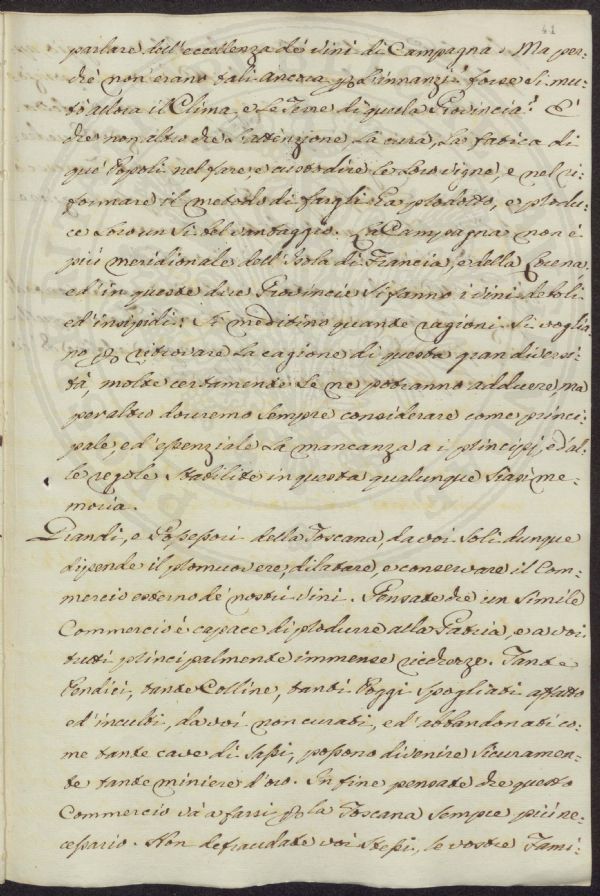 41
parlare dell'eccellenza dei vini di Campagna. Ma per-
ché non erano tali ancora per l'innanzi? forse si mu-
tò allora il Clima, e le Terre di quella Provincia? È
che non altro che l'attenzione, la cura, la fatica di
que' Popoli nel fare e custodire le loro vigne, e nel ri-
formare il metodo di fargli ha prodotto, e produ-
ce loro un sì bel vantaggio. La Campagna non è
più meridionale dell'Isola di Francia, e della Lorena
ed' in queste due Provincie si fanno i vini deboli
ed' insipidi: Si meditino quante ragioni si voglia-
no per ritrovare la cagione di questa gran diversi-
tà, molte certamente se ne potranno addurre, ma
per altro dovremo sempre considerare come princi-
pale, ed' essenziale la mancanza a i principj, ed' al-
le regole stabilite in questa qualunque siasi me-
moria.
Grandi, e Possessori della Toscana, da voi soli dunque
dipende il promuovere, dilatare, e conservare il Com-
mercio esterno de' nostri vini. Pensate che un simile
Commercio è capace di produrre alla Patria, e a voi
tutti principalmente immense ricchezze. Tante
Pendici, tante Colline, tanti Poggi spogliati affatto
ed' inculti, da voi non curati, ed' abbandonati co-
me tante cave di sassi, possono divenire sicuramen-
te tante miniere d'oro. In fine pensate che questo
Commercio và a farsi per la Toscana sempre più ne-
cessario. Non defraudate voi stessi, le vostre Fami-